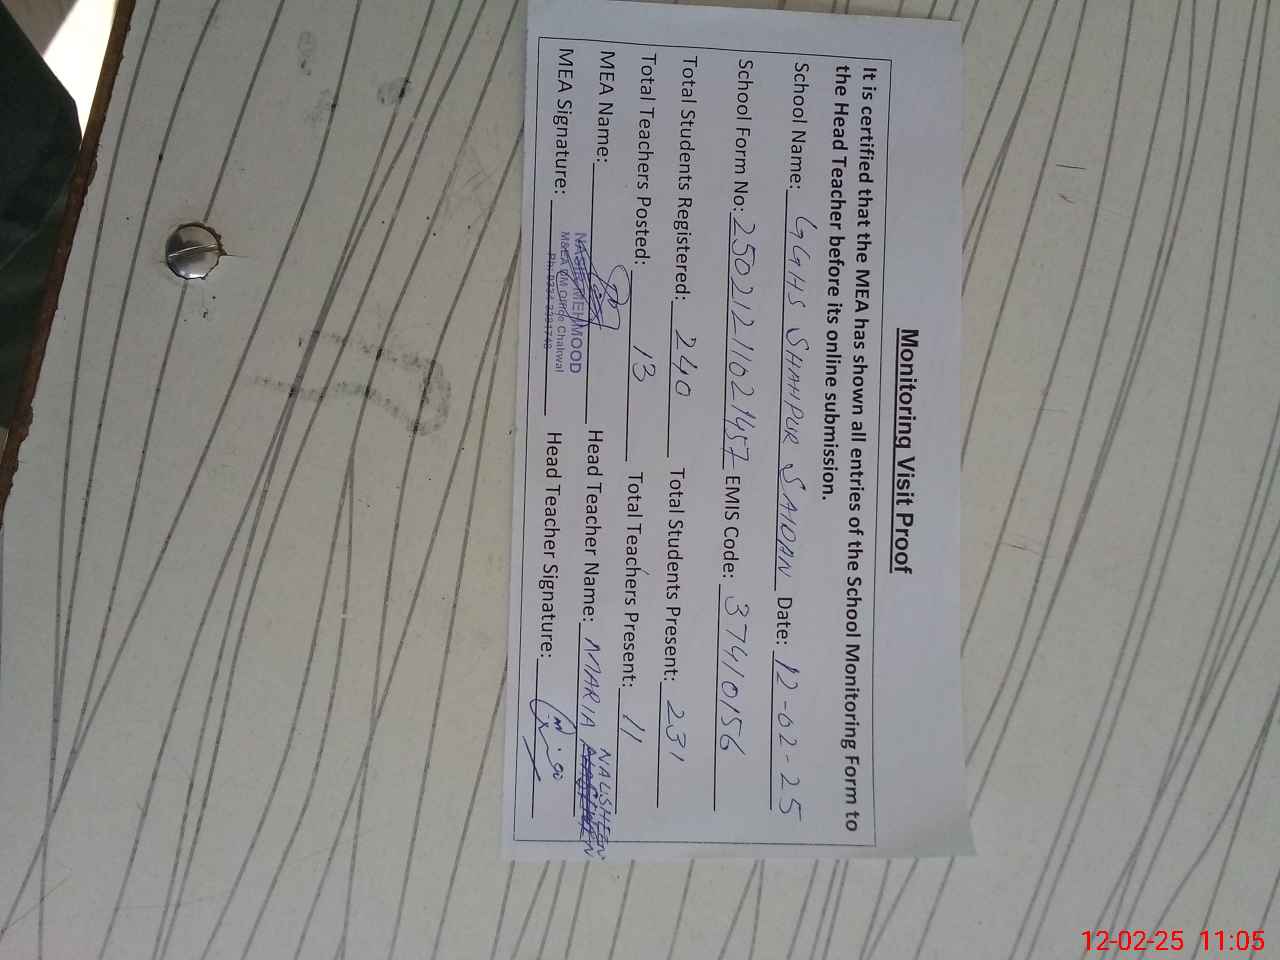 Monitoring Visit Proof
It is certified that the MEA has shown all entries of the School Monitoring Form to
the Head Teacher before its online submission.
School Name: GGHS SHAHPUR SAIDAN Date: 12-02-25
School Form No: 25021211021457 EMIS Code: 37410156
Total Students Registered: 240 Total Students Present: 231
Total Teachers Posted: 13 Total Teachers Present: 11
MEA Name: Head Teacher Name: MARIA NAUSHEEN
MEA Signature: Head Teacher Signature:
MEHMOOD
M&EA Chakwal
12-02-25 11:05